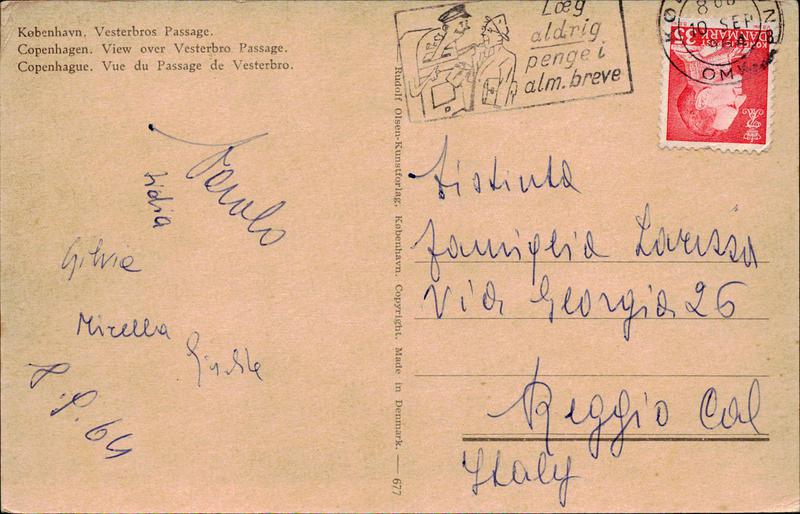 København. Vesterbros Passage.
Copenhagen. View over Vesterbro Passage.
Copenhague. Vue du Passage de Vesterbro.
Læg
aldrig
penge i
alm. breve
10 SEP
OMK
DANMARK 35
Rudolf Olsen-Kunstforlag. København. Copyright. Made in Denmark. — 677
Lidia
Silvia
Mirella
8.9.64
Distinta
famiglia Larussa
Via Georgia 26
Reggio Cal
Italy